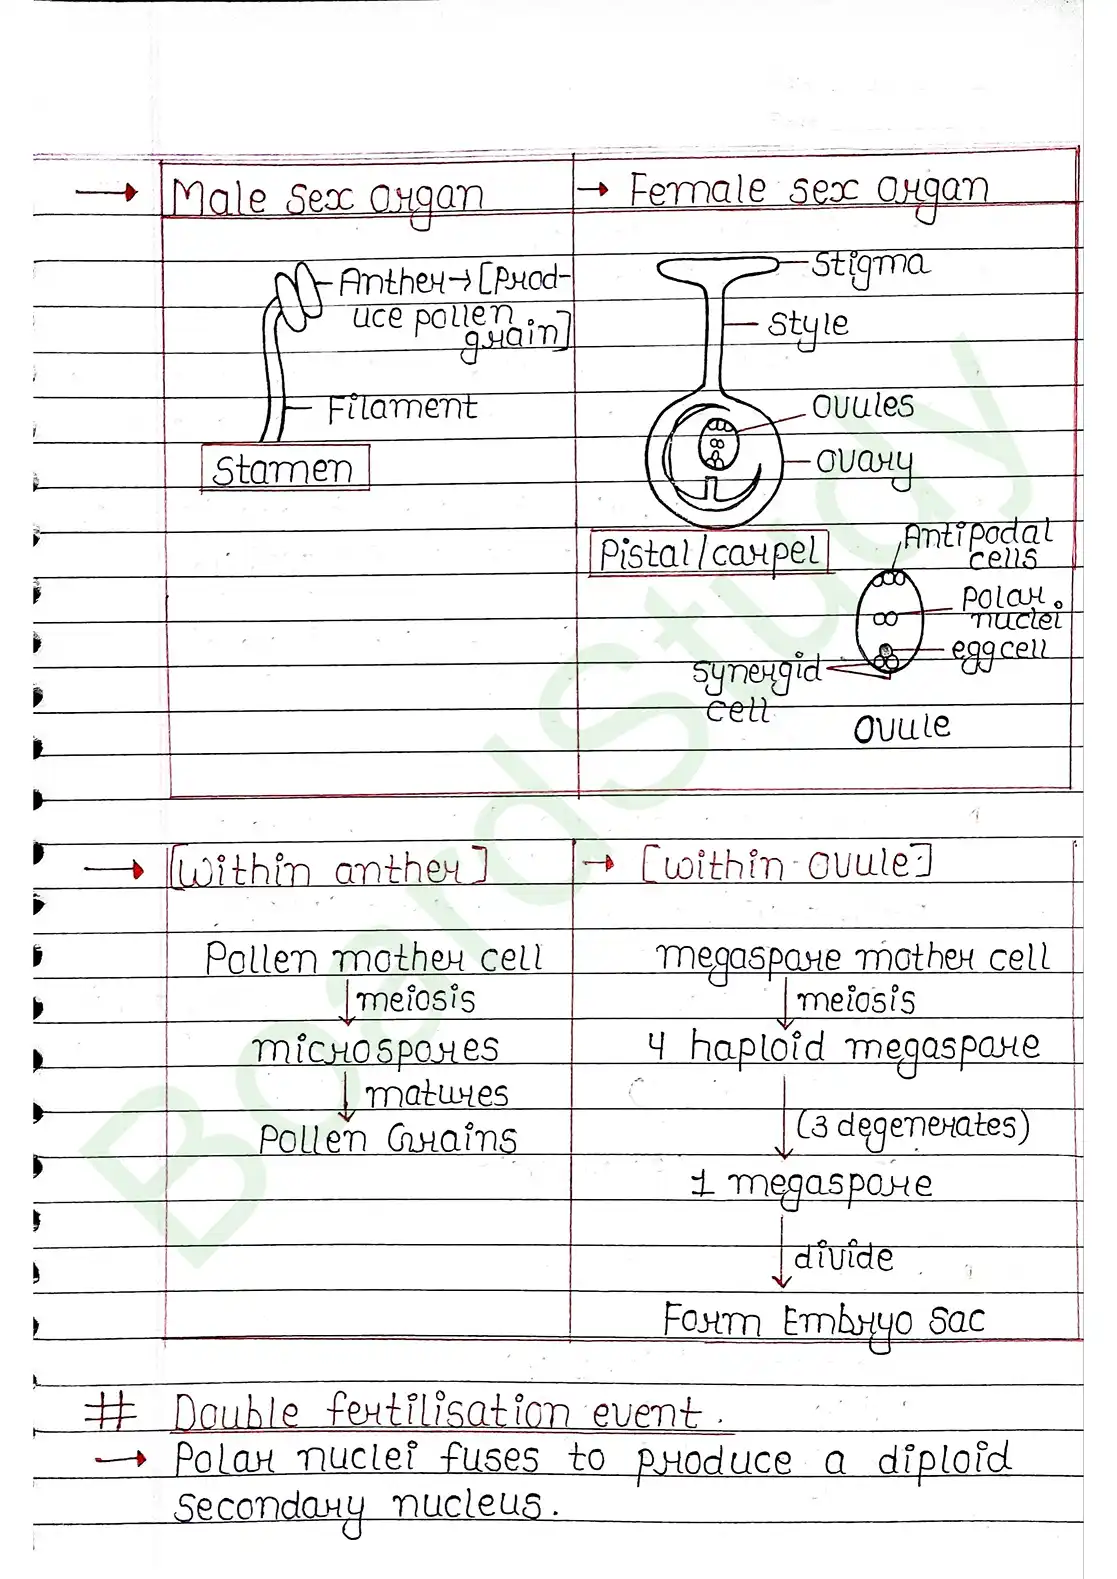 Male sex organ
Female sex organ
Anther→[Prod-
uce pollen
grain]
Filament
Stamen
Stigma
Style
Ovules
Ovary
Pistal/carpel
Antipodal
cells
Polar
nuclei
egg cell
synergid
cell
Ovule
[Within anther]
[within ovule]
Pollen mother cell
meiosis
microspores
matures
Pollen Grains
megaspore mother cell
meiosis
4 haploid megaspore
(3 degenerates)
1 megaspore
divide
Form Embryo Sac
# Double fertilisation event.
→ Polar nuclei fuses to produce a diploid
secondary nucleus.
BoardStudy